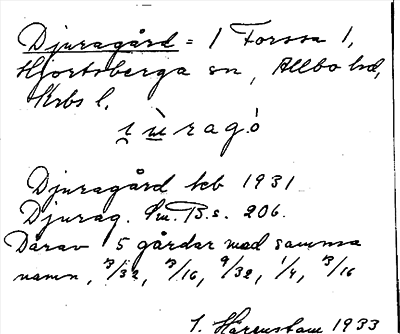 Djuragård = 1 Forssa 1,
Hjortsberga sn, Allbo hd,
Krbs l.
ɩ ù̱ r a g ȯ
Djuragård kb 1931
Djurag. Sm. B.s. 206.
Därav 5 gårdar med samma
namn, 3/32, 3/16, 9/32, 1/4, 3/16
1. Härenstam 1933